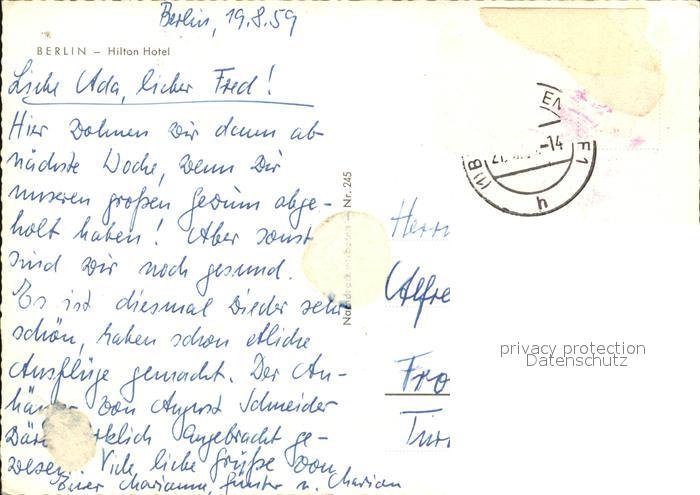 Berlin, 19.8.59
BERLIN – Hilton Hotel
Liebe Ada, lieber Fred!
Hier wohnen wir dann ab
nächste Woche, wenn wir
unseren großen Gewinn abge-
holt haben! Aber sonst
sind wir noch gesund.
Es ist diesmal wieder sehr
schön, haben schon etliche
Ausflüge gemacht. Der An-
hänger von August Schneider
wäre wirklich angebracht ge-
wesen. Viele liebe Grüße von
Eurer Marianne, Günter u. Marian
Nr. 245
Herrn
Alfre
Fro
-14
(1) B
F1
h
privacy protection
Datenschutz